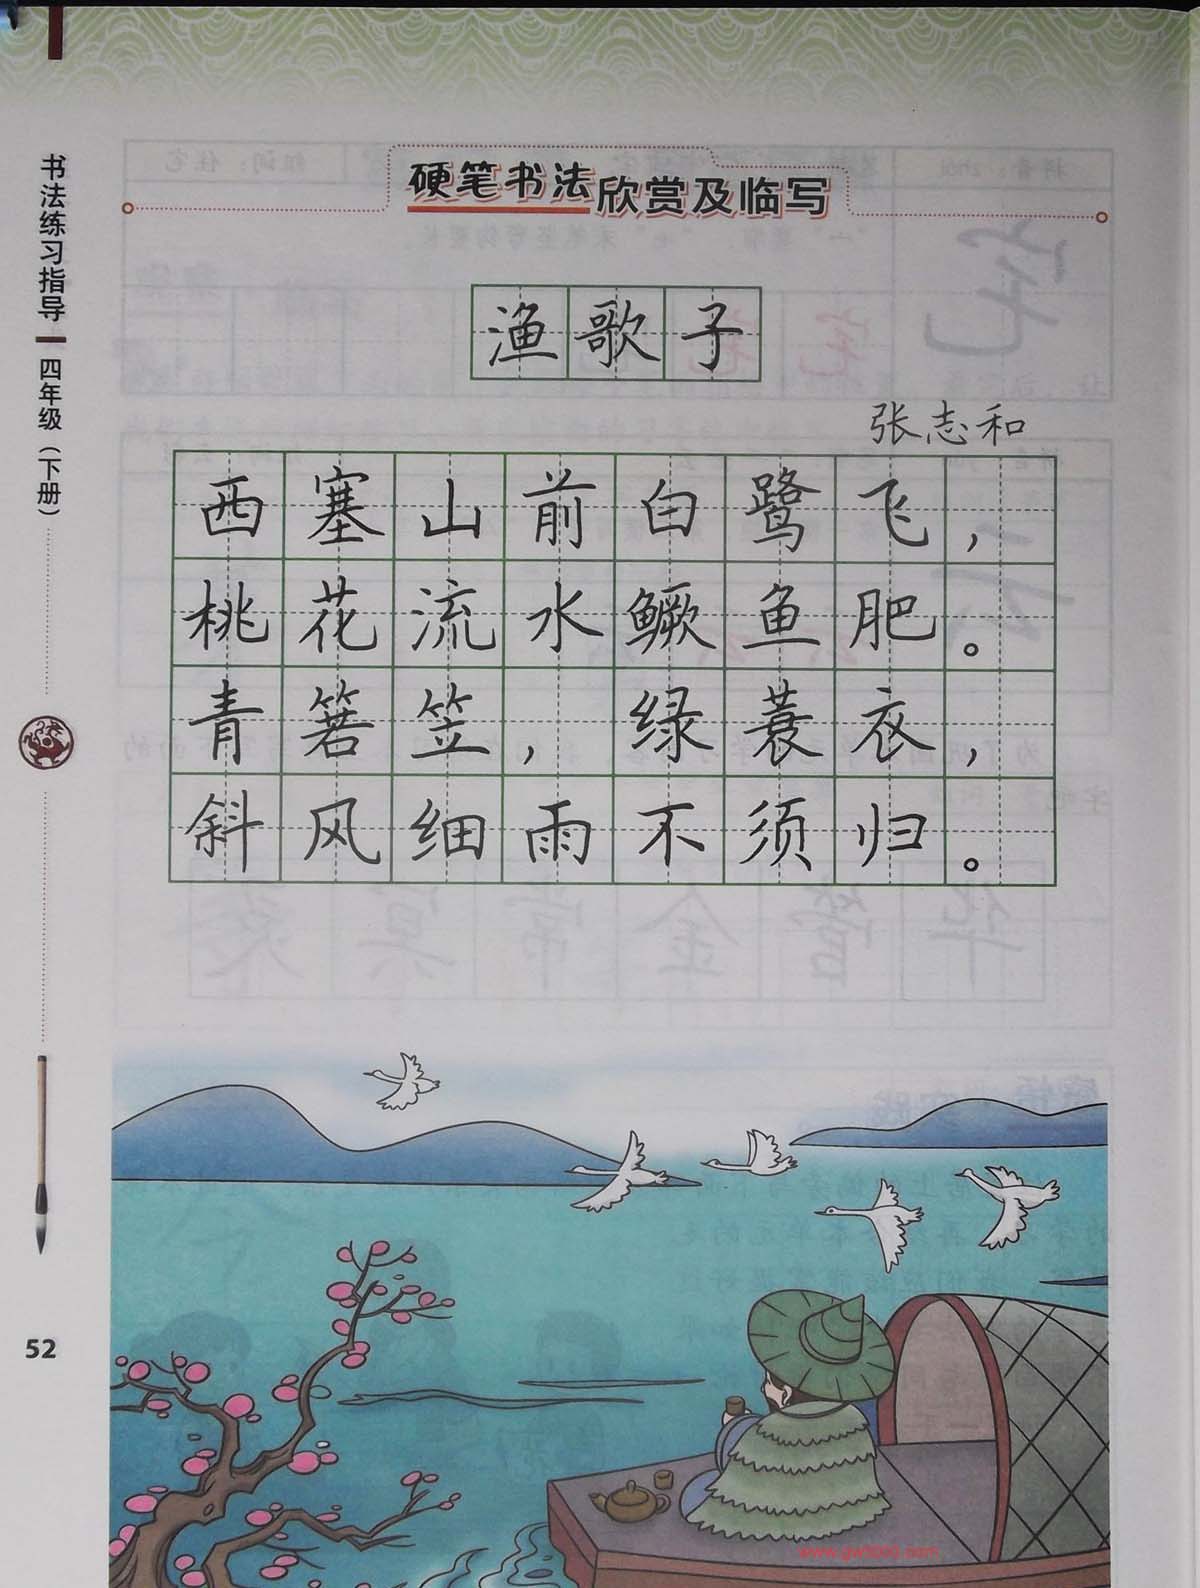 硬笔书法欣赏及临写
渔歌子
张志和
西塞山前白鹭飞，
桃花流水鳜鱼肥。
青箬笠，绿蓑衣，
斜风细雨不须归。
书法练习指导
四年级（下册）
52
www.gwt000.com